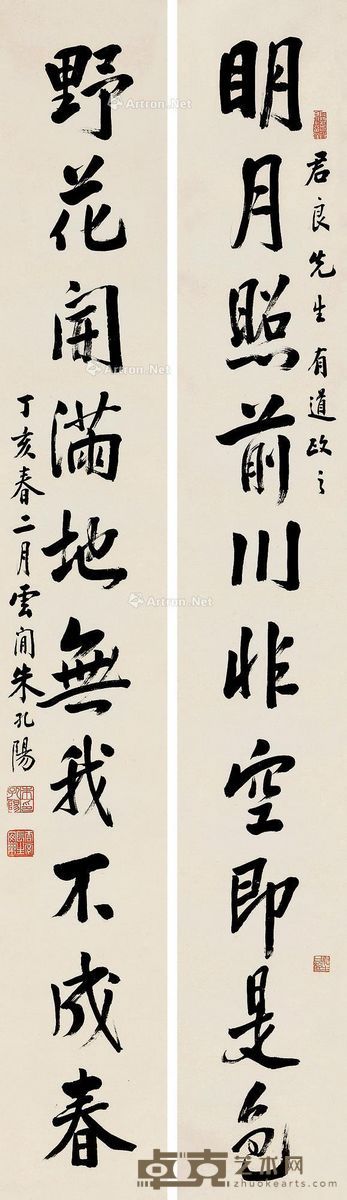 明月照前川非空即是色
君良先生有道政之
野花開滿地無我不成春
丁亥春二月雲間朱孔陽
Artron.Net
卓克艺术网
www.zhuokearts.com